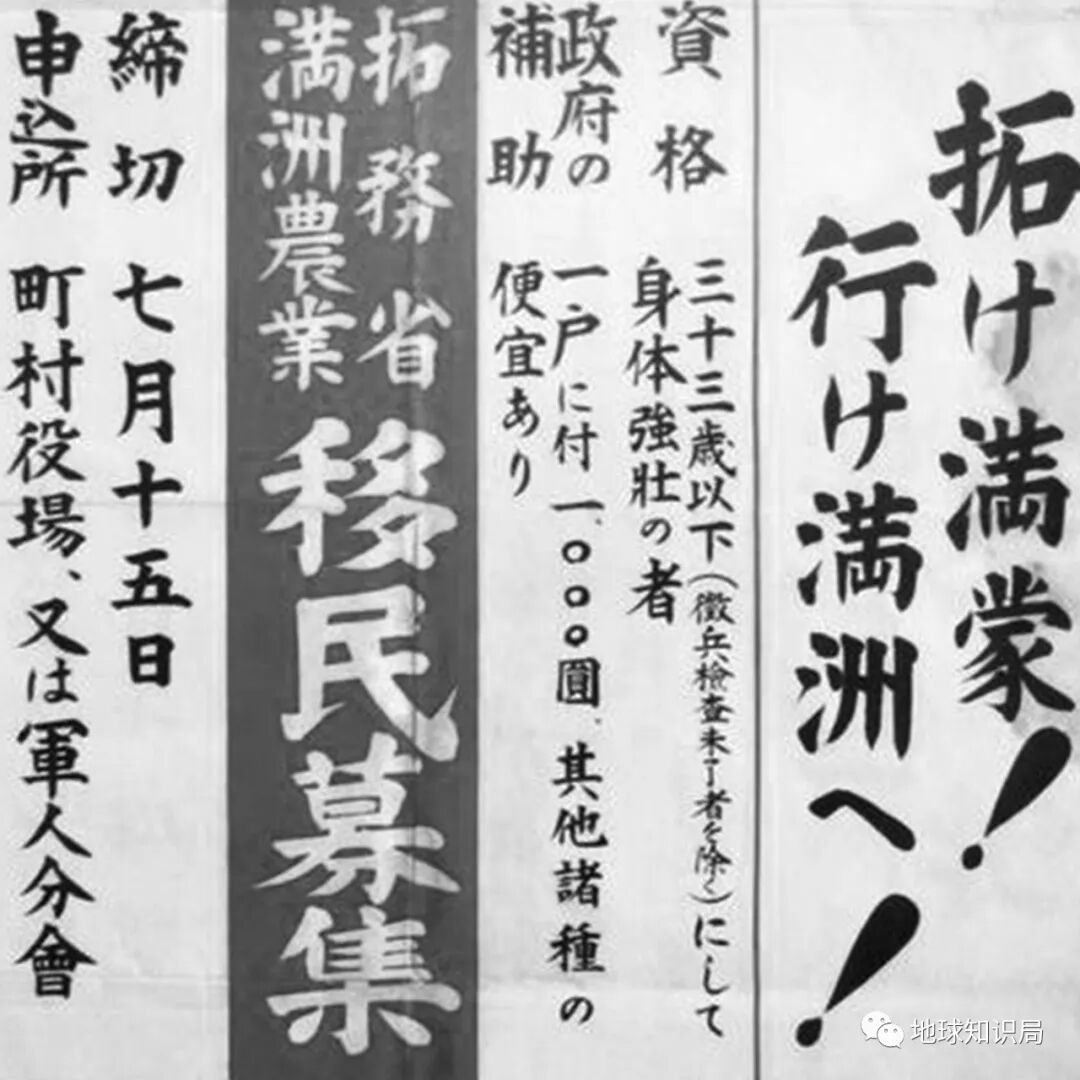 拓け満蒙！
行け満洲へ！
資格
三十三歳以下（徴兵檢査未了者を除く）にして
身体強壮の者
政府の
補助
一戸に付一、〇〇〇圓、其他諸種の
便宜あり
拓務省
満洲農業
移民募集
締切 七月十五日
申込所 町村役場、又は軍人分會
地球知识局